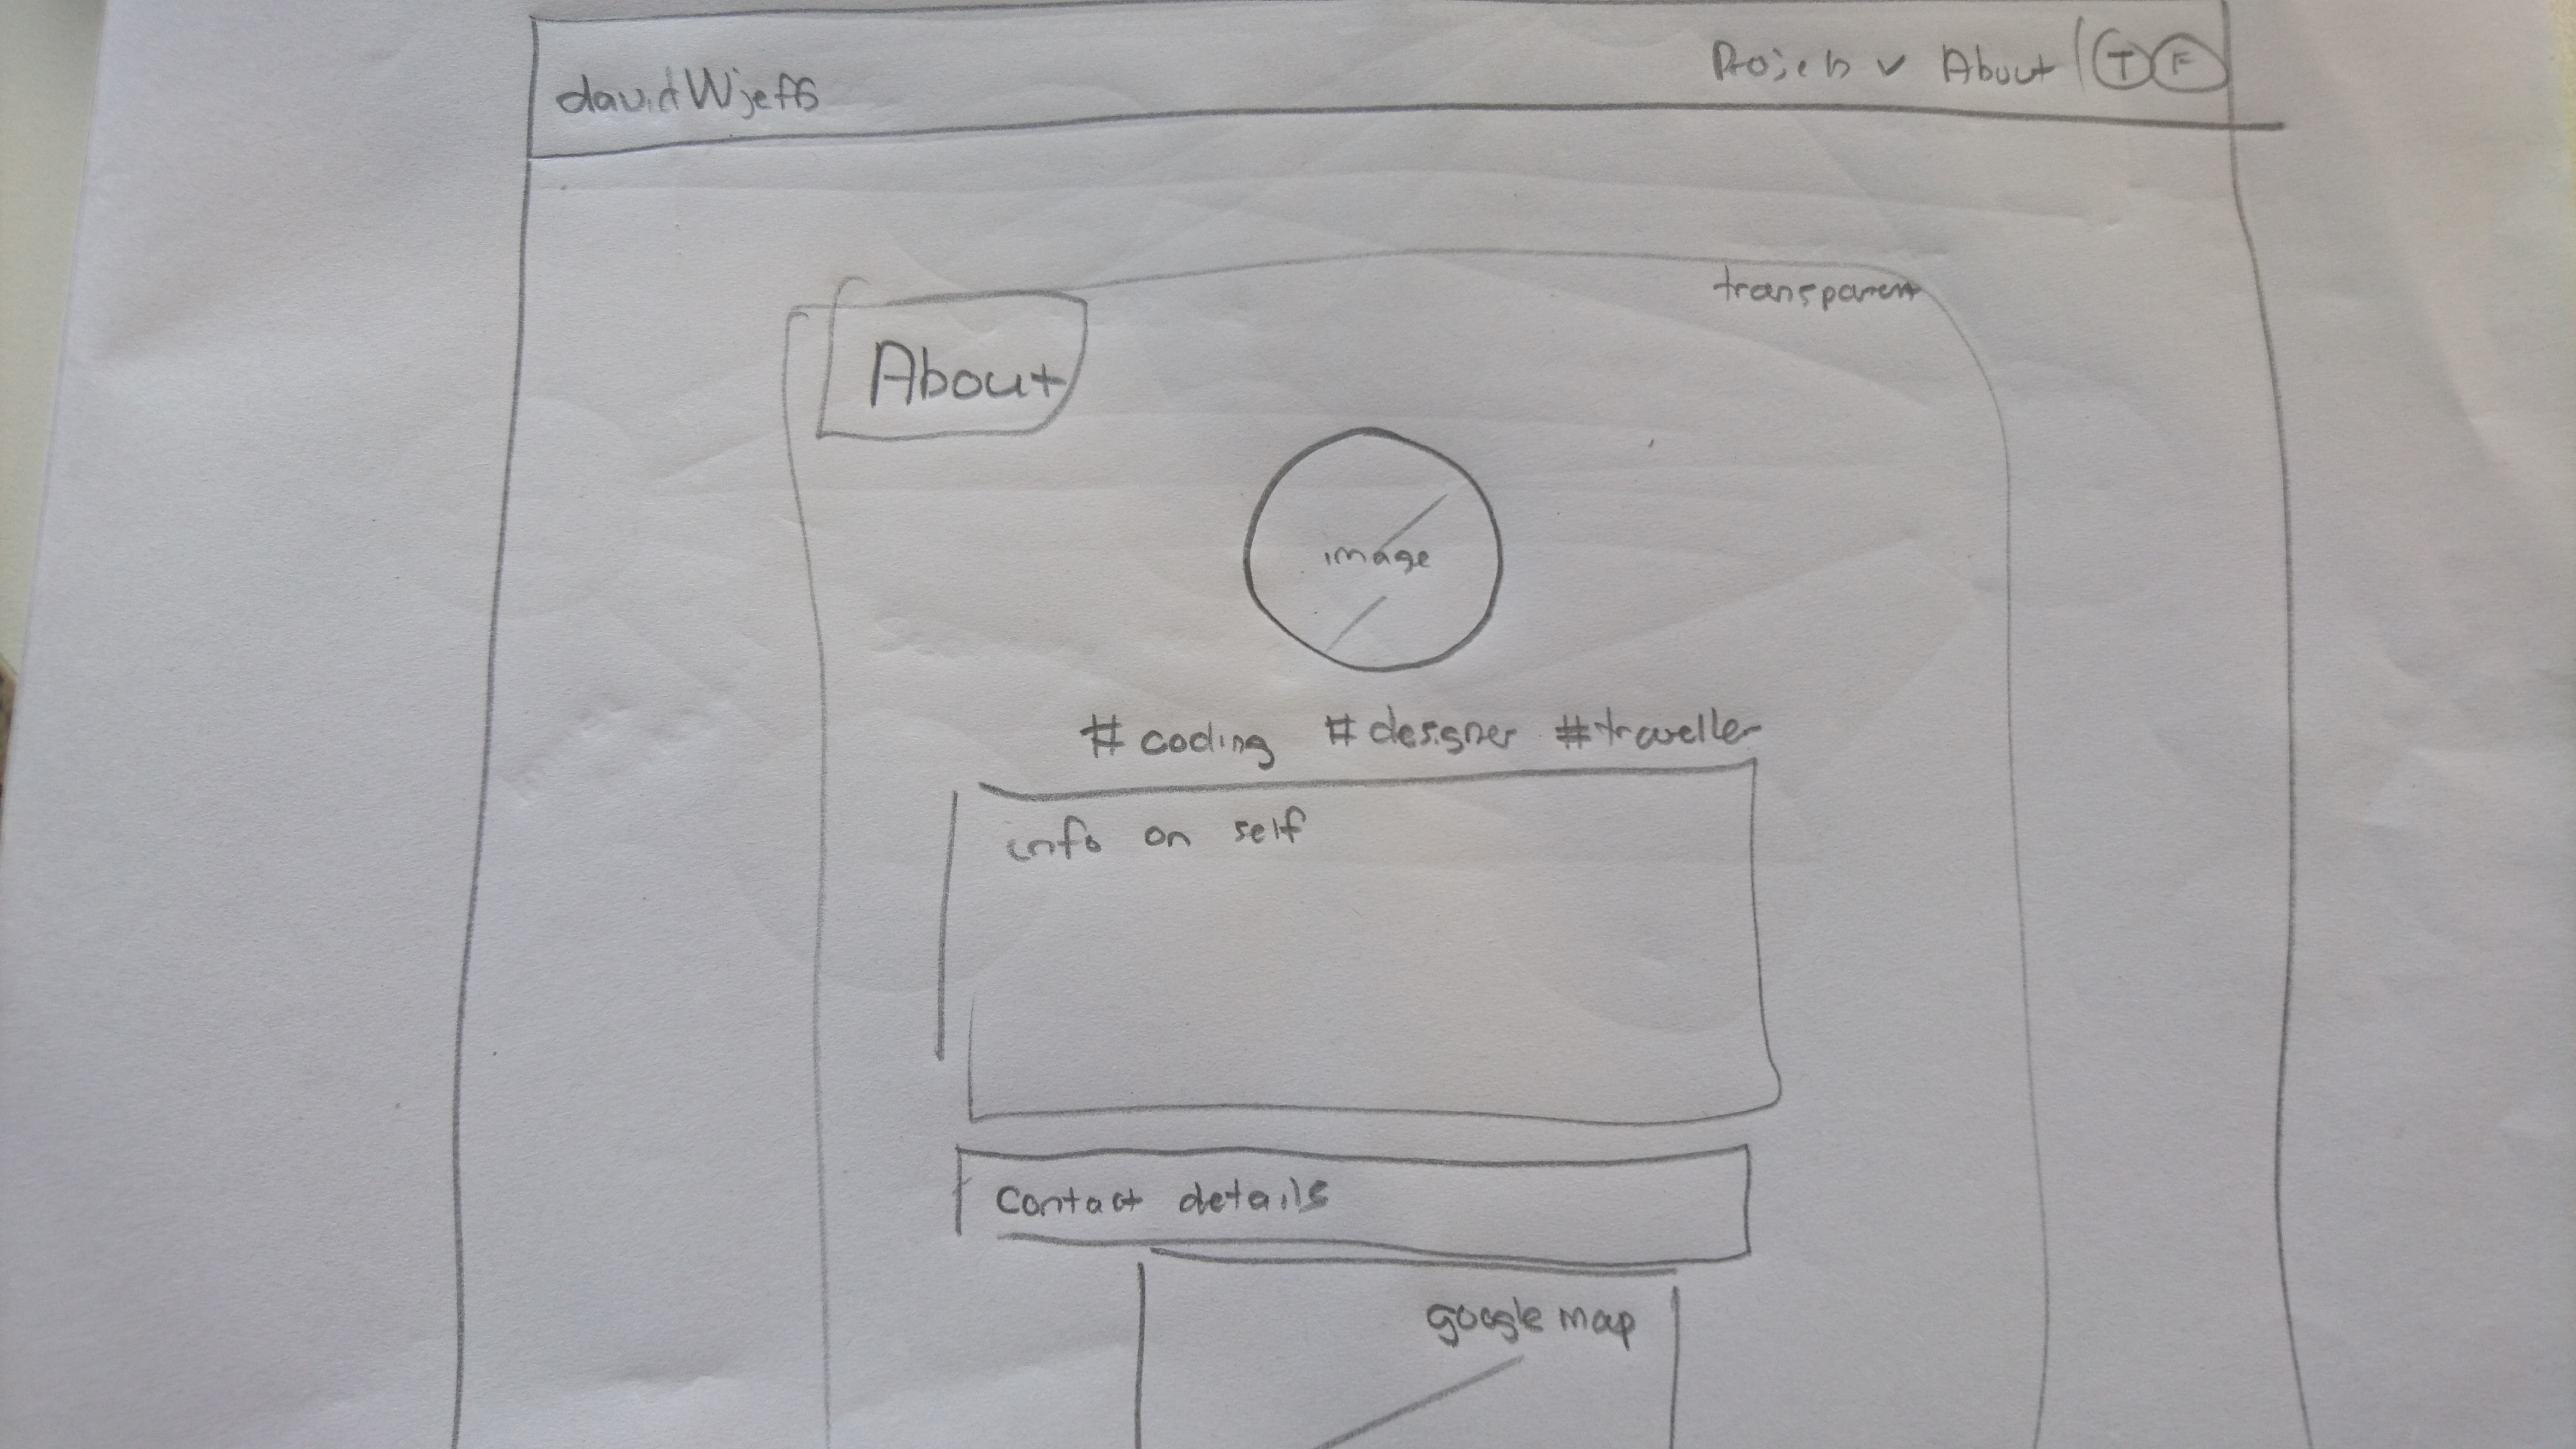 davidWjeffs
Projects ∨ About | T F
transparent
About
image
#coding #designer #traveller
info on self
Contact details
google map